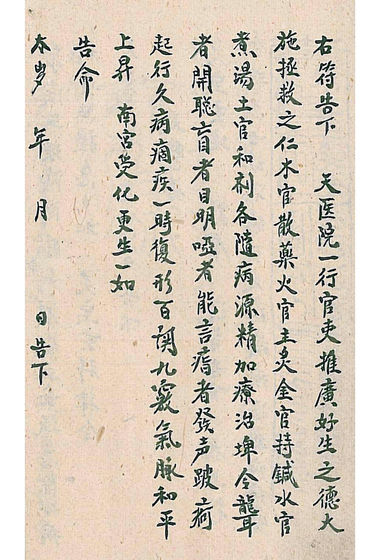 右符告下　天医院一行官吏推廣好生之德大
施拯救之仁木官散藥火官主灸金官持鍼水官
煮湯土官和剂各隨病源精加療治埤令聾
者開聰盲者目明啞者能言瘖者發声跛痾
起行久病痼疾一時復形百関九竅氣脉和平
上昇　南宮受化更生一如
告命
太岁　年　月　日告下